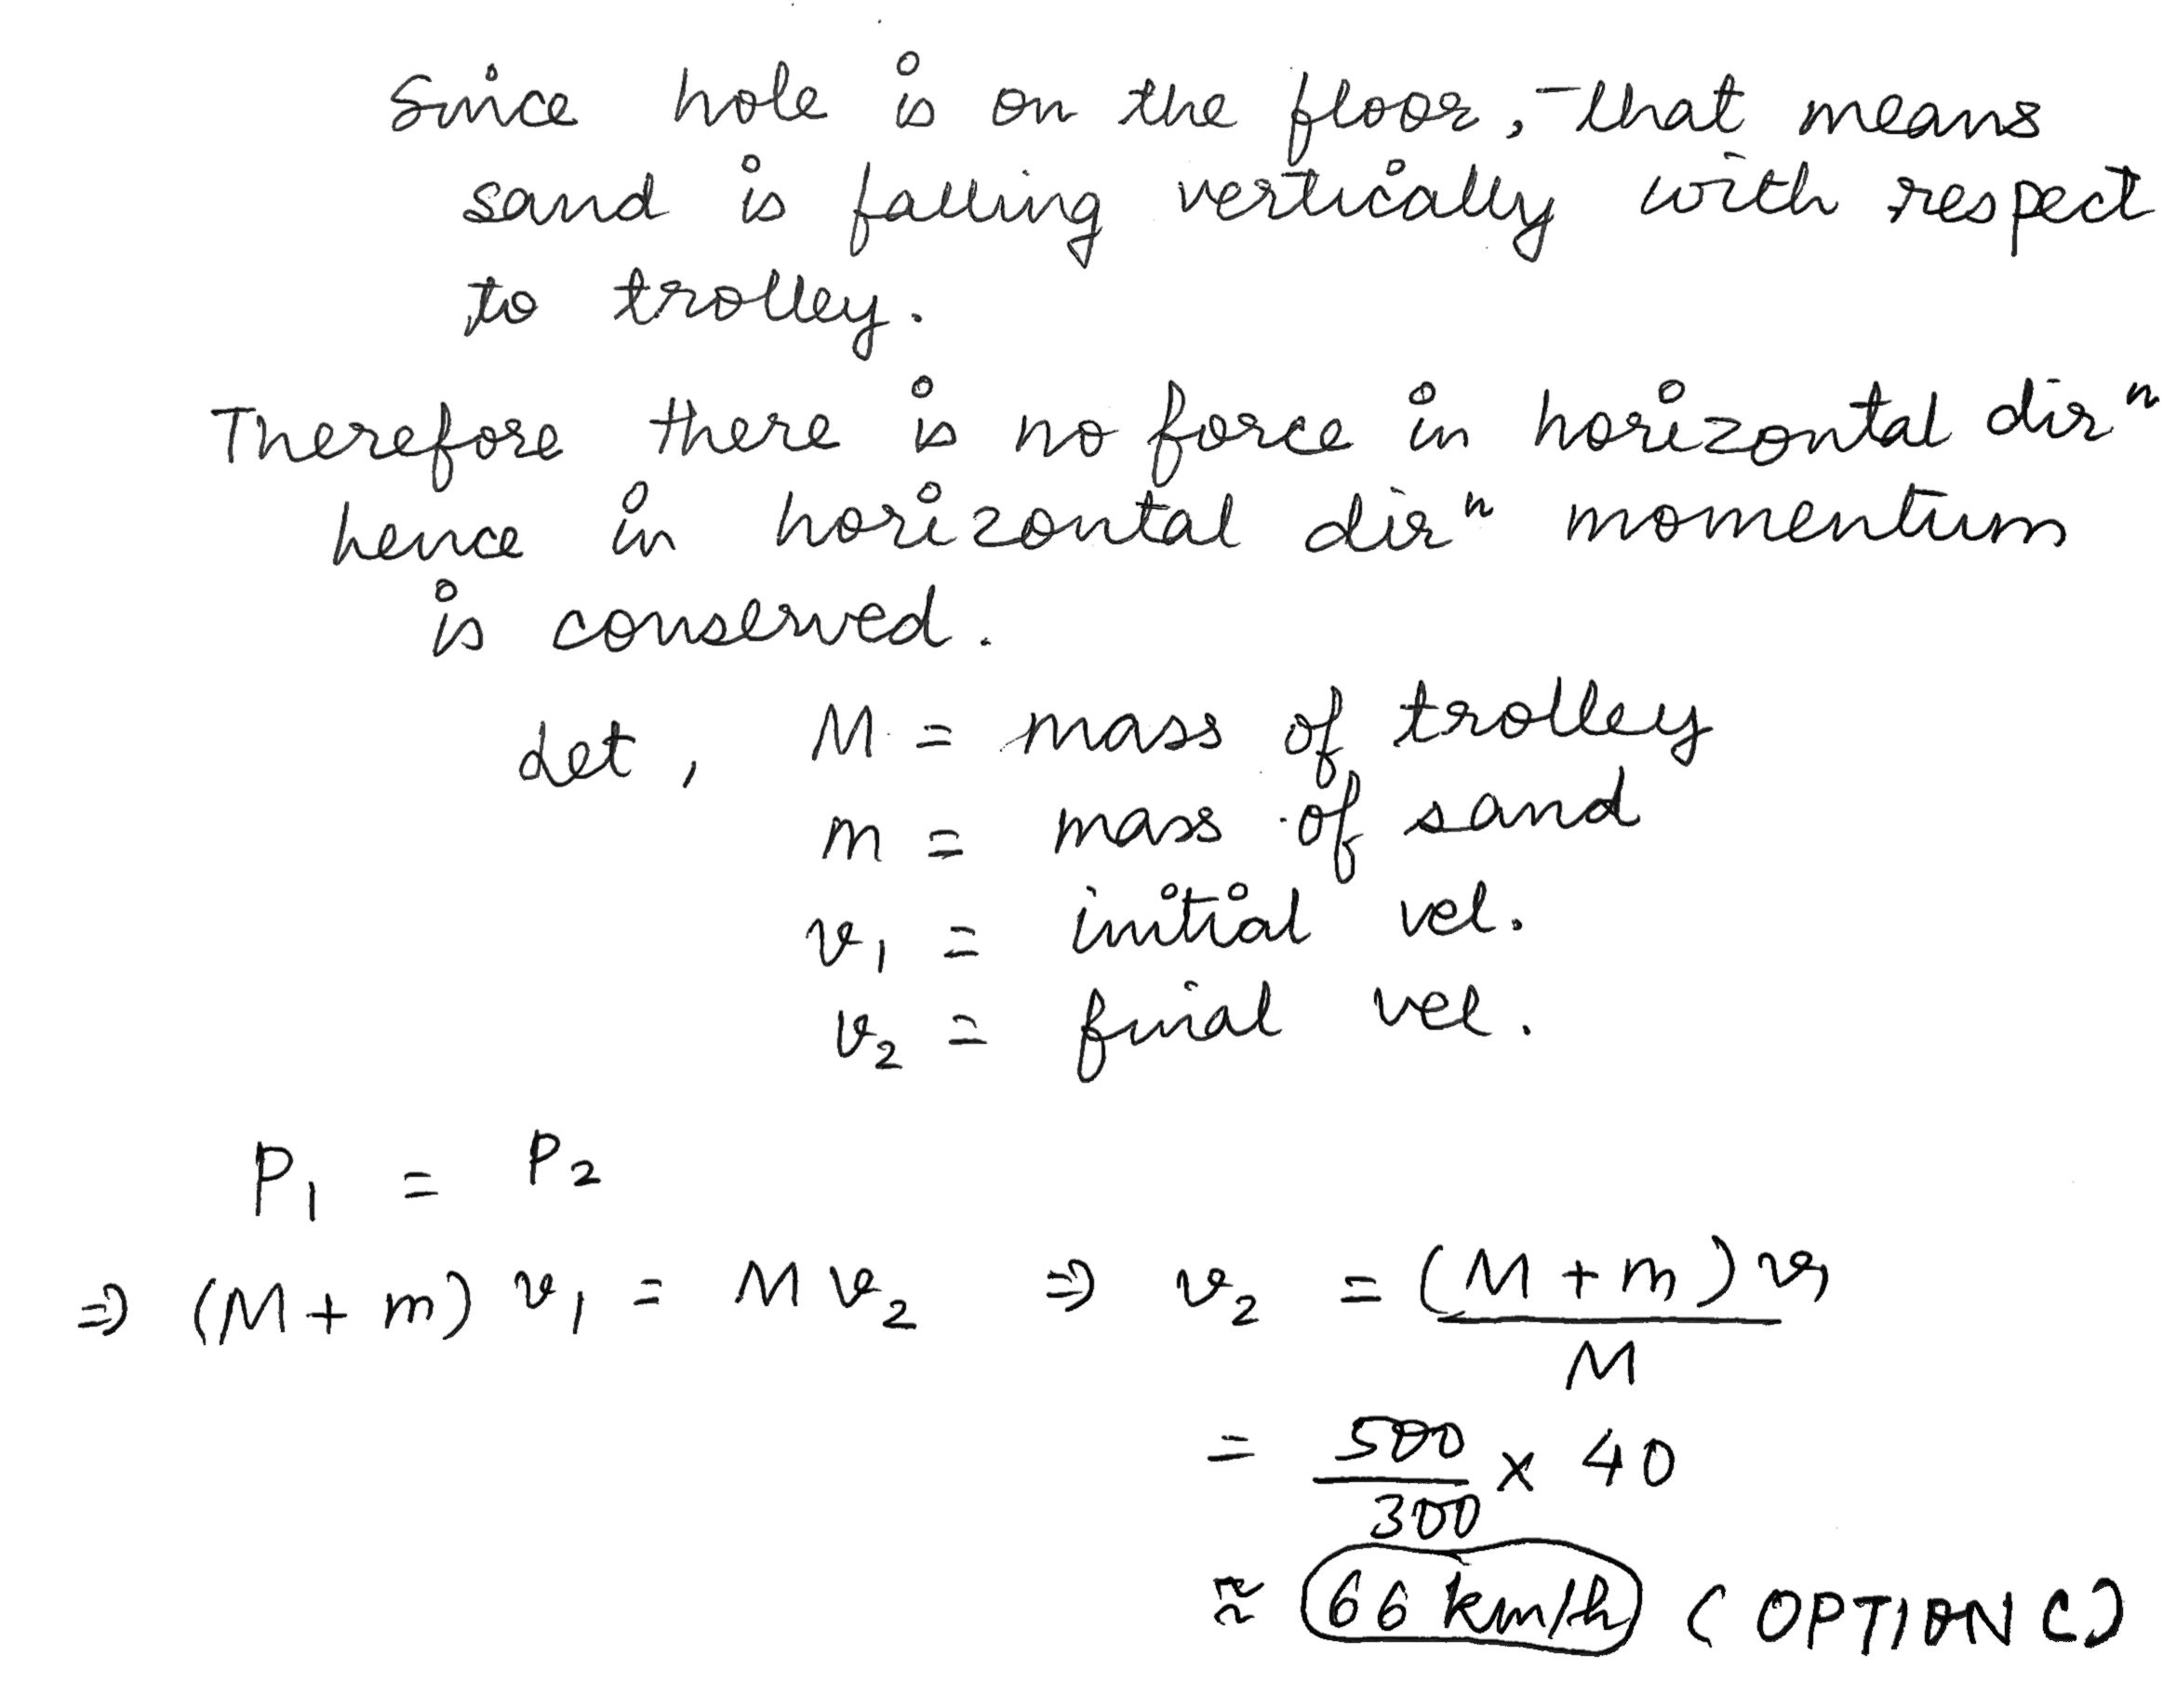 Since hole is on the floor, that means
sand is falling vertically with respect
to trolley.
Therefore there is no force in horizontal dirⁿ
hence in horizontal dirⁿ momentum
is conserved.
Let, M = mass of trolley
m = mass of sand
v₁ = initial vel.
v₂ = final vel.
P₁ = P₂
⇒ (M + m) v₁ = M v₂ ⇒ v₂ = (M + m) v₁
M
= 500/300 × 40
≈ 66 km/h (OPTION C)